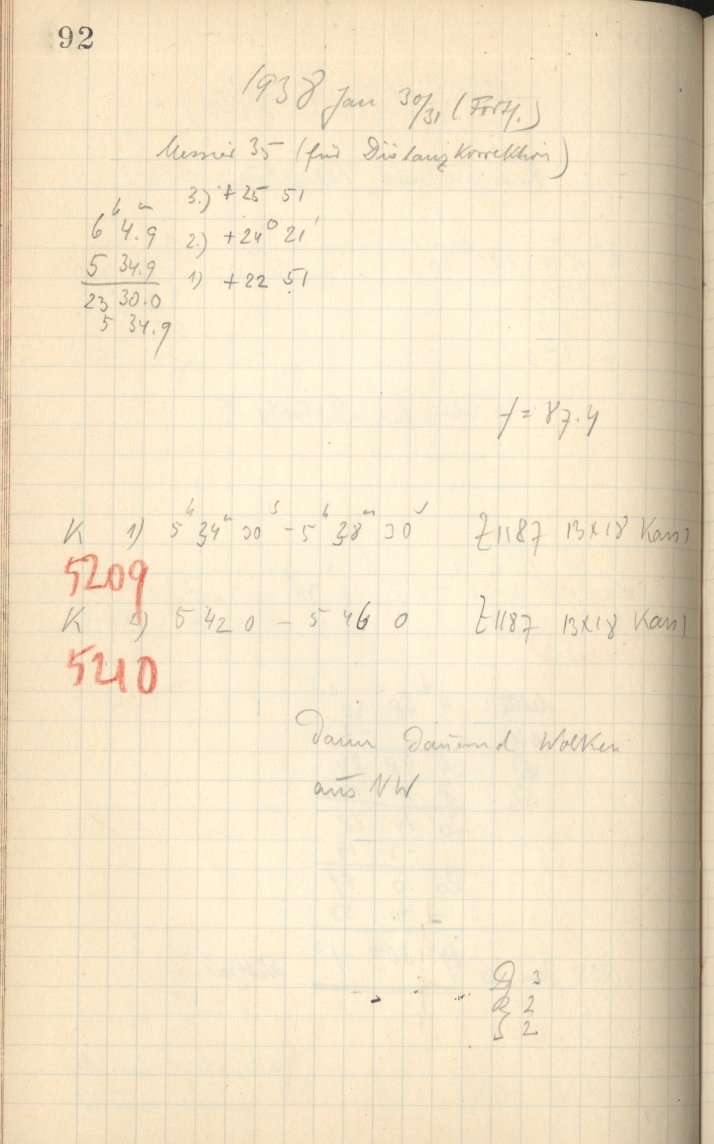 92
1938 Jan 30/31 (Forts.)
Messier 35 (für Distanzkorrektion)
3.) +25 51
6h 4.9m 2.) +24° 21'
5 34.9 1) +22 51
23 30.0
5 34.9
f = 87.4
K 1) 5h 34m 30s - 5h 38m 30s Z1187 13x18
5209
K 2) 5 42 0 - 5 46 0 Z1187 13x18
5210
Dann dauernd Wolken
aus NW
D 3
R 2
S 2